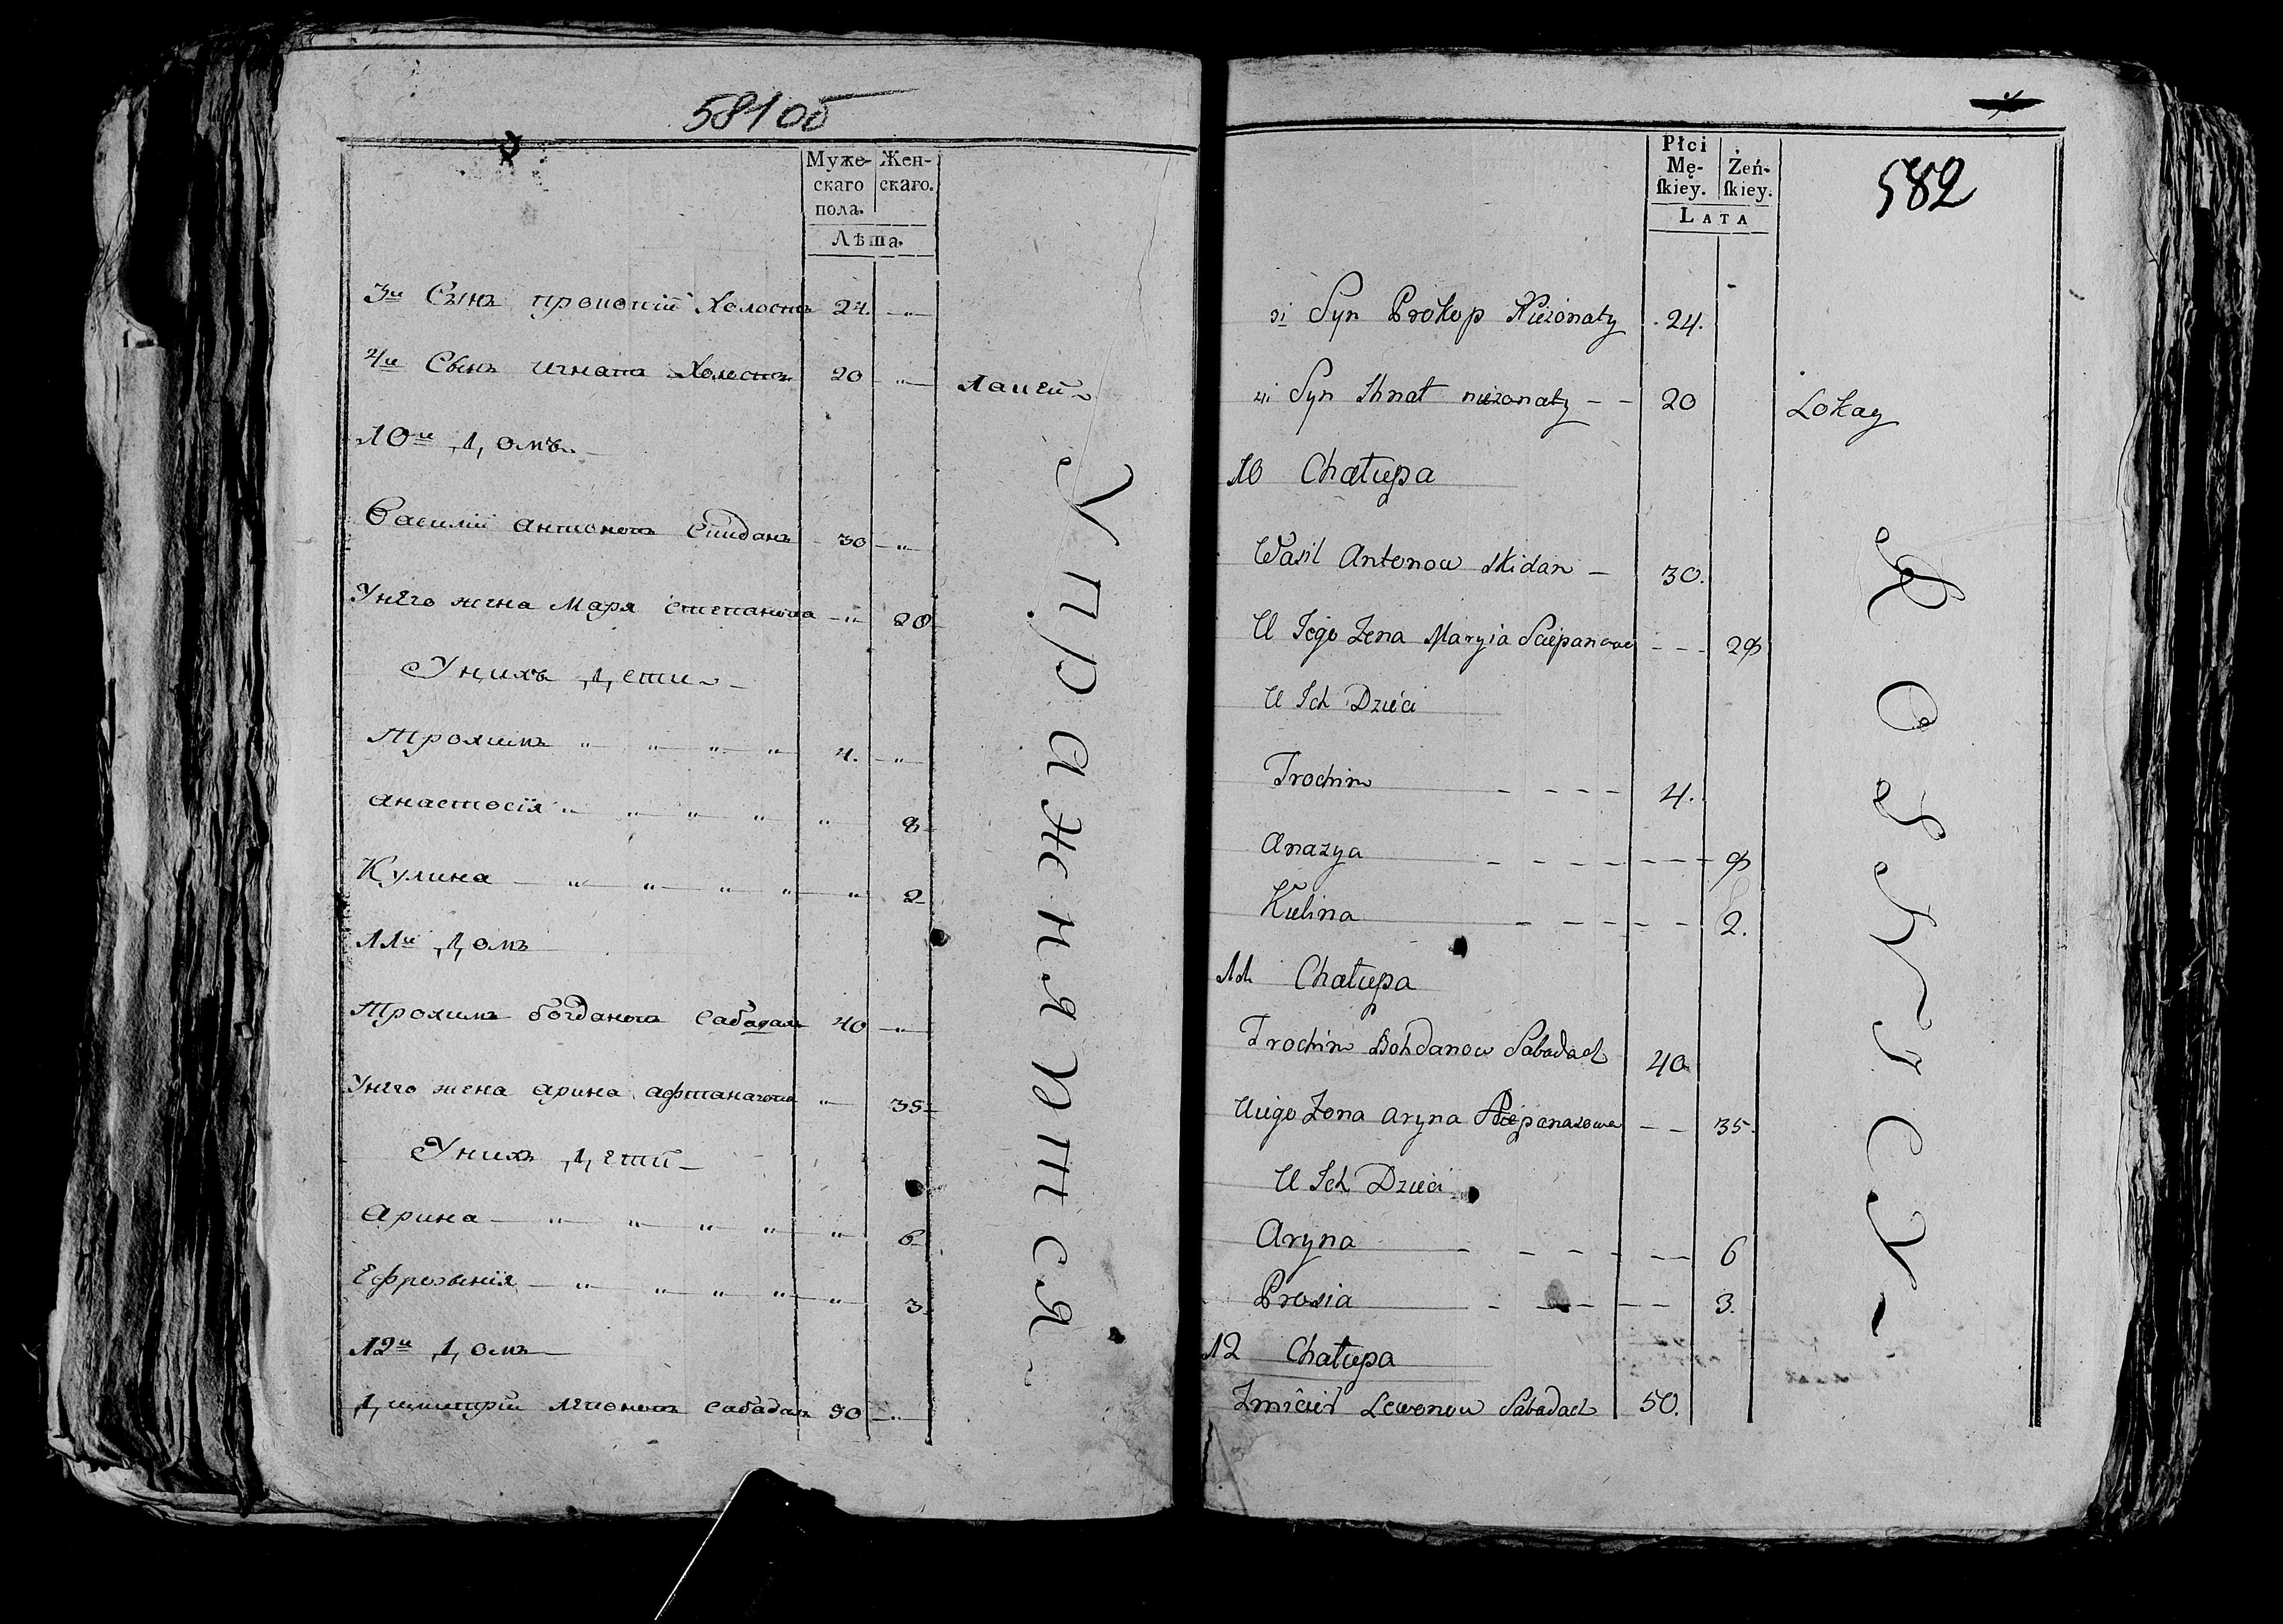 581об
Муже-
скаго
пола.
Жен-
скаго.
Лѣта.
3й Сынъ прокопій Холостъ 24. — " —
4й Сынъ игнатъ Холостъ 20 — " — Лакей
10й Домъ
Василій антоновъ скиданъ 30 — " —
У него жена Маря степанова — " — 28
У нихъ Дети
Трохимъ " " " " 4. — " —
анастосія " " " " " 8
Кулина " " " " " 2
11й Домъ
Трохимъ богдановъ сабадахъ 40 — " —
У него жена арина афтанагова " 35
У нихъ Дети
арина " " " " " 6
Ефросинія " " " " " 3
12й Домъ
Димитрій леоновъ сабадахъ 50 — " —
Упражняются
582
Płci
Mę-
ſkiey.
Żeń-
ſkiey.
LATA
3i Syn Prokop Nieżonaty 24.
4i Syn Ihnat nieżonaty — — 20 Lokay
10 Chałupa
Wasil Antonow Skidan — 30.
U Jego Żena Maryia Sciepanowa — — — 28
U Ich Dzieci
Trochim — — — — 4.
Anazya — — — — — — — 8
Kulina — — — — — 2.
11 Chałupa
Trochim Bohdanow Sabadach 40
U iego Żona Aryna — — 35.
U Ich Dzieci
Aryna — — — — — — 6
Prosia — — — — — 3.
12 Chałupa
Zmicier Lewonow Sabadach 50.
ROSKICY